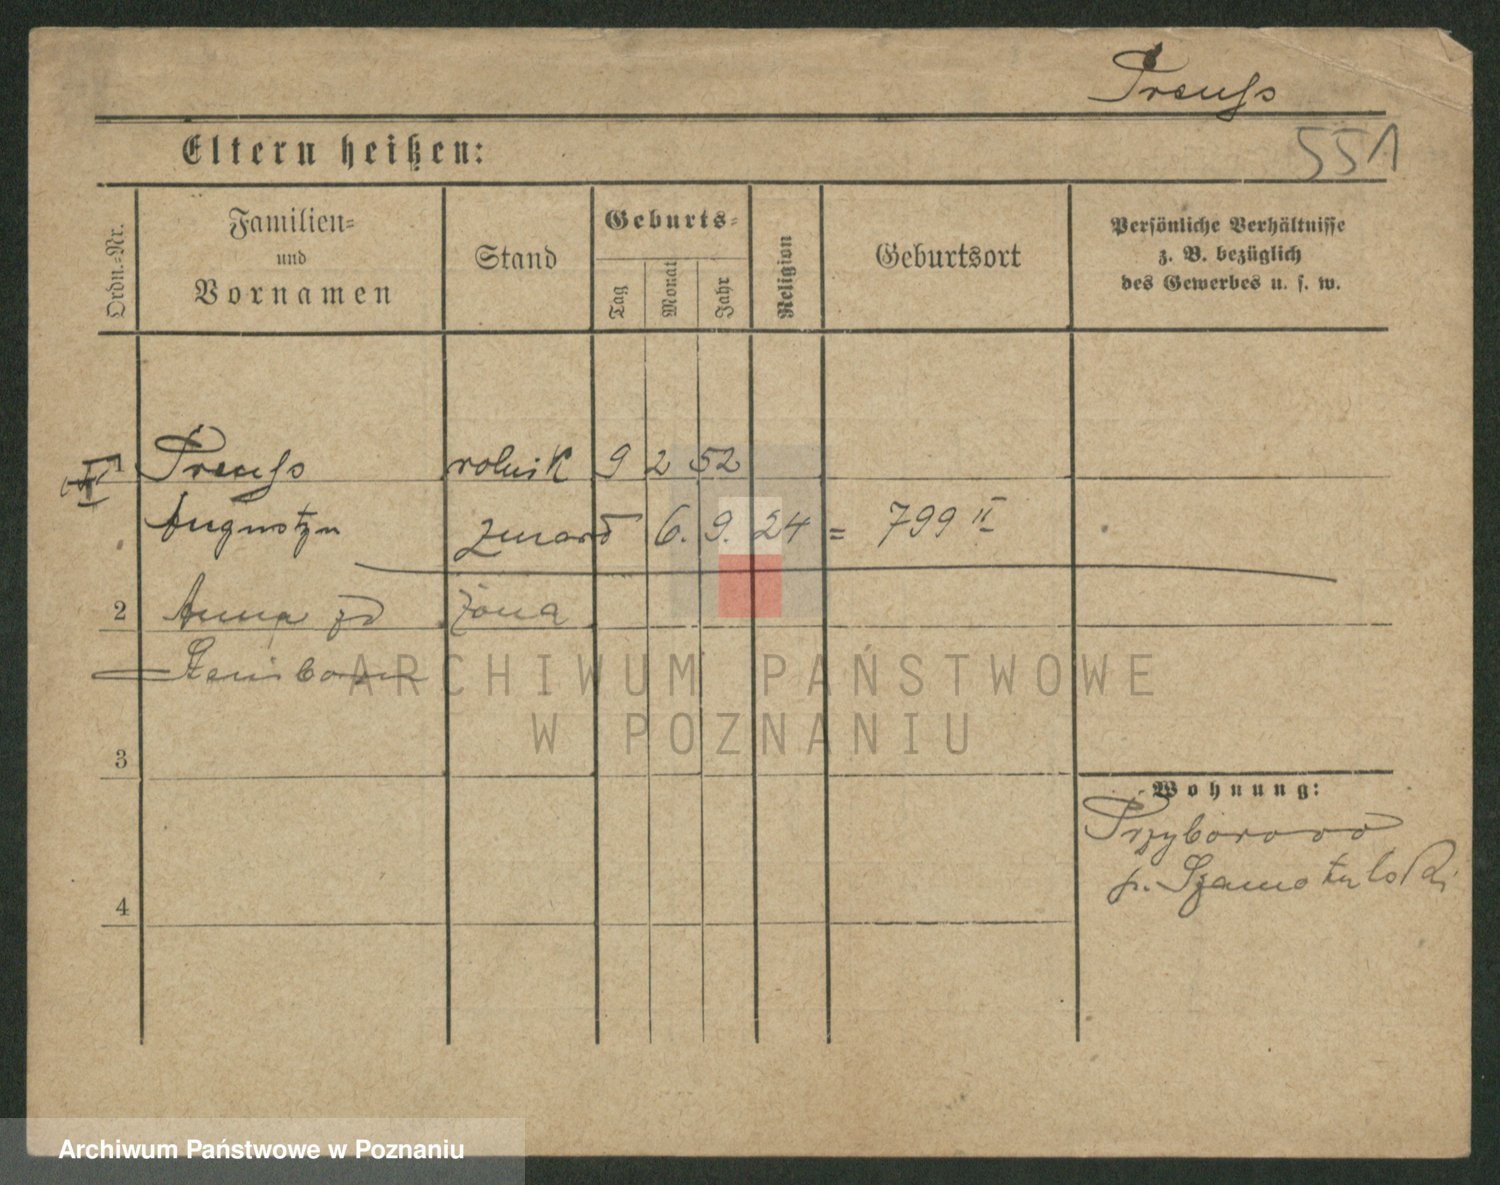 Preuß
Eltern heißen:
551
Ordn.-Nr.
Familien-
und
Vornamen
Stand
Geburts-
Tag
Monat
Jahr
Religion
Geburtsort
Persönliche Verhältnisse
z. B. bezüglich
des Gewerbes u. s. w.
Preuß rolnik 9 2 52
Augustyn zmarł 6. 9. 24 = 799 II
2 Anna zd żona
ARCHIWUM PAŃSTWOWE
W POZNANIU
3
Wohnung:
Przyborowo
p. Szamotulski
4
Archiwum Państwowe w Poznaniu